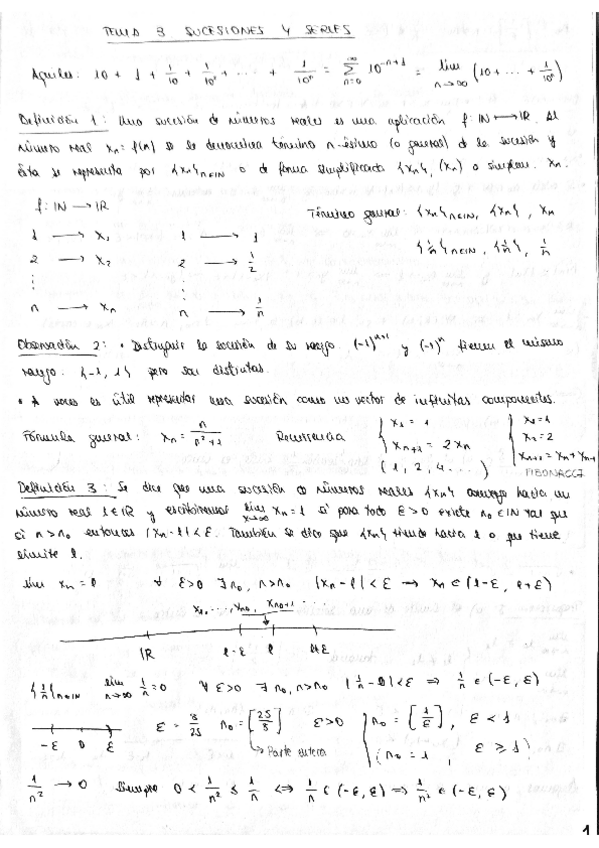 TEMA 3 SUCESIONES Y SERIES
Aquiles: 10 + 1 + 1/10 + 1/10² + ... + 1/10ⁿ = ∑_{n=0}^{∞} 10^{-n+1} = lim_{n→∞} (10 + ... + 1/10ⁿ)
Definición 1: Una sucesión de números reales es una aplicación f: IN ⟼ IR. Al
número real xₙ = f(n) se le denomina término n-ésimo (o general) de la sucesión y
ésta se representa por {xₙ}ₙ∈IN o de forma simplificada {xₙ}, (xₙ) o simplem. xₙ.
f: IN → IR
Término general: {xₙ}ₙ∈IN, {xₙ}, xₙ
1 → x₁ 1 → 1
{1/n}ₙ∈IN, {1/n}, 1/n
2 → x₂ 2 → 1/2
⋮ ⋮
n → xₙ n → 1/n
Observación 2: • Distinguir la sucesión de su rango. (-1)ⁿ⁺¹ y (-1)ⁿ tienen el mismo
rango: {-1, 1} pero son distintas.
• A veces es útil representar una sucesión como un vector de infinitas componentes.
Fórmula general: xₙ = n/(n²+1) Recurrencia { x₁ = 1 { x₁ = 1
xₙ₊₁ = 2xₙ x₂ = 2
(1, 2, 4 ... ) xₙ₊₂ = xₙ + xₙ₊₁
FIBONACCI
Definición 3: Se dice que una sucesión de números reales {xₙ} converge hacia un
número real l ∈ IR y escribiremos lim xₙ = l si para todo ε > 0 existe n₀ ∈ IN tal que
si n > n₀ entonces |xₙ - l| < ε. También se dice que {xₙ} tiende hacia l o que tiene
límite l.
lim xₙ = l ∀ ε>0 ∃ n₀, n>n₀ |xₙ - l| < ε → xₙ ∈ (l-ε, l+ε)
x₁, ..., xₙ₀, xₙ₀₊₁
IR l-ε l l+ε
{1/n}ₙ∈IN lim_{n→∞} 1/n = 0 ∀ ε>0 ∃ n₀, n>n₀ |1/n - 0| < ε ⇒ 1/n ∈ (-ε, ε)
-ε 0 ε ε = 3/25 n₀ = [25/3] ε>0 { n₀ = [1/ε], ε < 1
Parte entera n₀ = 1, ε ≥ 1 }
1/n² → 0 Siempre 0 < 1/n² ≤ 1/n ⟺ 1/n ∈ (-ε, ε) ⇒ 1/n² ∈ (-ε, ε)
1